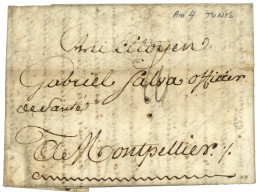 An 4 TUNIS
Au citoyen
Gabriel Salva officier
de Santé
A Montpellier